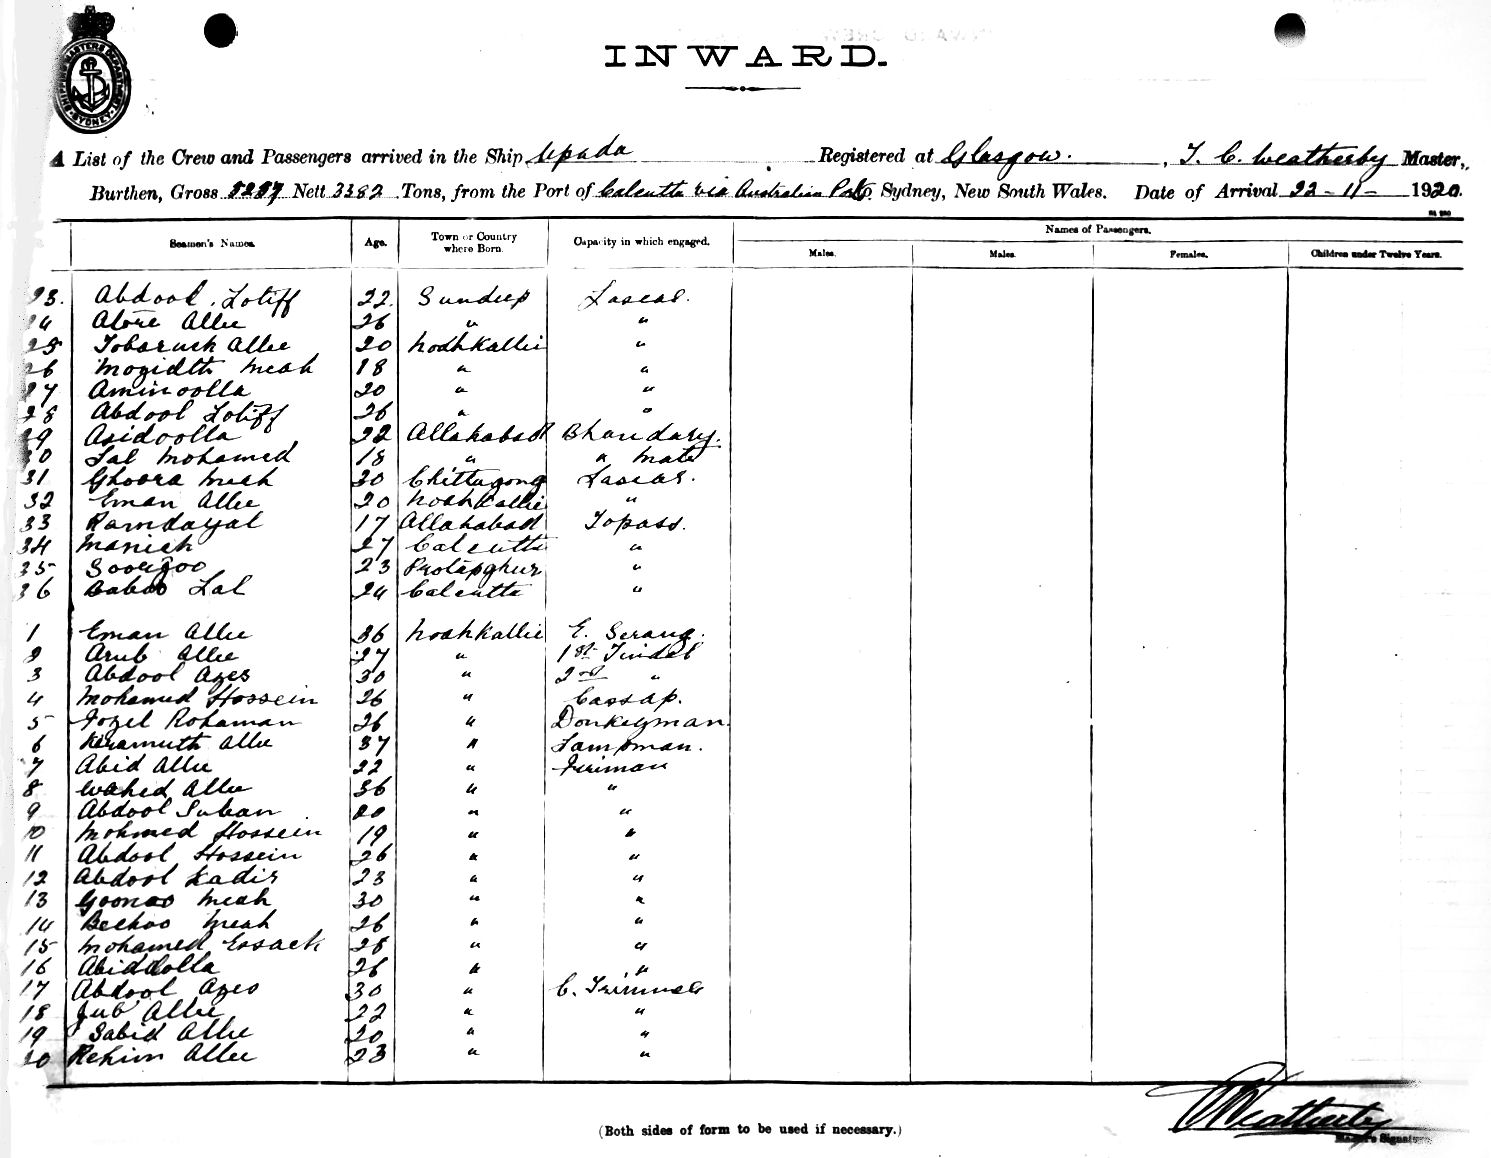 SHIPPING MASTERS DEPARTMENT SYDNEY
INWARD.
A List of the Crew and Passengers arrived in the Ship Upada Registered at Glasgow. , T. C. Weatherby Master,
Burthen, Gross 5257 Nett 3382 Tons, from the Port of Calcutta via Australian Ports Sydney, New South Wales. Date of Arrival 22-11- 1920.
Seamen's Names. Age. Town or Country where Born. Capacity in which engaged. Names of Passengers.
Males. Males. Females. Children under Twelve Years.
23. Abdool Lotiff 22 Sundeep Lascar.
24 Allie 26 " "
25 Tobaruck Allie 20 Noahkallie "
26 Mozidth Meah 18 " "
27 Aminoolla 20 " "
28 Abdool Lotiff 26 " "
29 Asidoolla 22 Allahabad Bhandary.
30 Lal Mohamed 18 " " Mate
31 Ghoora Meah 30 Chittagong Lascar.
32 Eman Allie 20 Noahkallie "
33 Ramdayal 17 Allahabad Topass.
34 Manick 27 Calcutta "
35 23 Protapghur "
36 Baboo Lal 24 Calcutta "
1 Eman Allie 36 Noahkallie E. Serang.
2 Arub Allie 27 " 1st Tindal
3 Abdool Azes 30 " 2nd "
4 Mohamed Hossein 26 " Cassap.
5 Fozel Rohaman 26 " Donkeyman.
6 Keramuth Allie 37 " Lampman.
7 Abid Allie 22 " Fireman
8 Wahed Allie 36 " "
9 Abdool Suban 20 " "
10 Mohmed Hossein 19 " "
11 Abdool Hossein 26 " "
12 Abdool Kadir 23 " "
13 Goonoo Meah 30 " "
14 Bechoo Meah 26 " "
15 Mohamed Essack 28 " "
16 Abiddolla 26 " "
17 Abdool Azes 30 " C. Trimmer
18 Jub Allie 22 " "
19 Sabid Allie 20 " "
20 Rehim Allie 23 " "
(Both sides of form to be used if necessary.)
TCWeatherby
Master's Signature